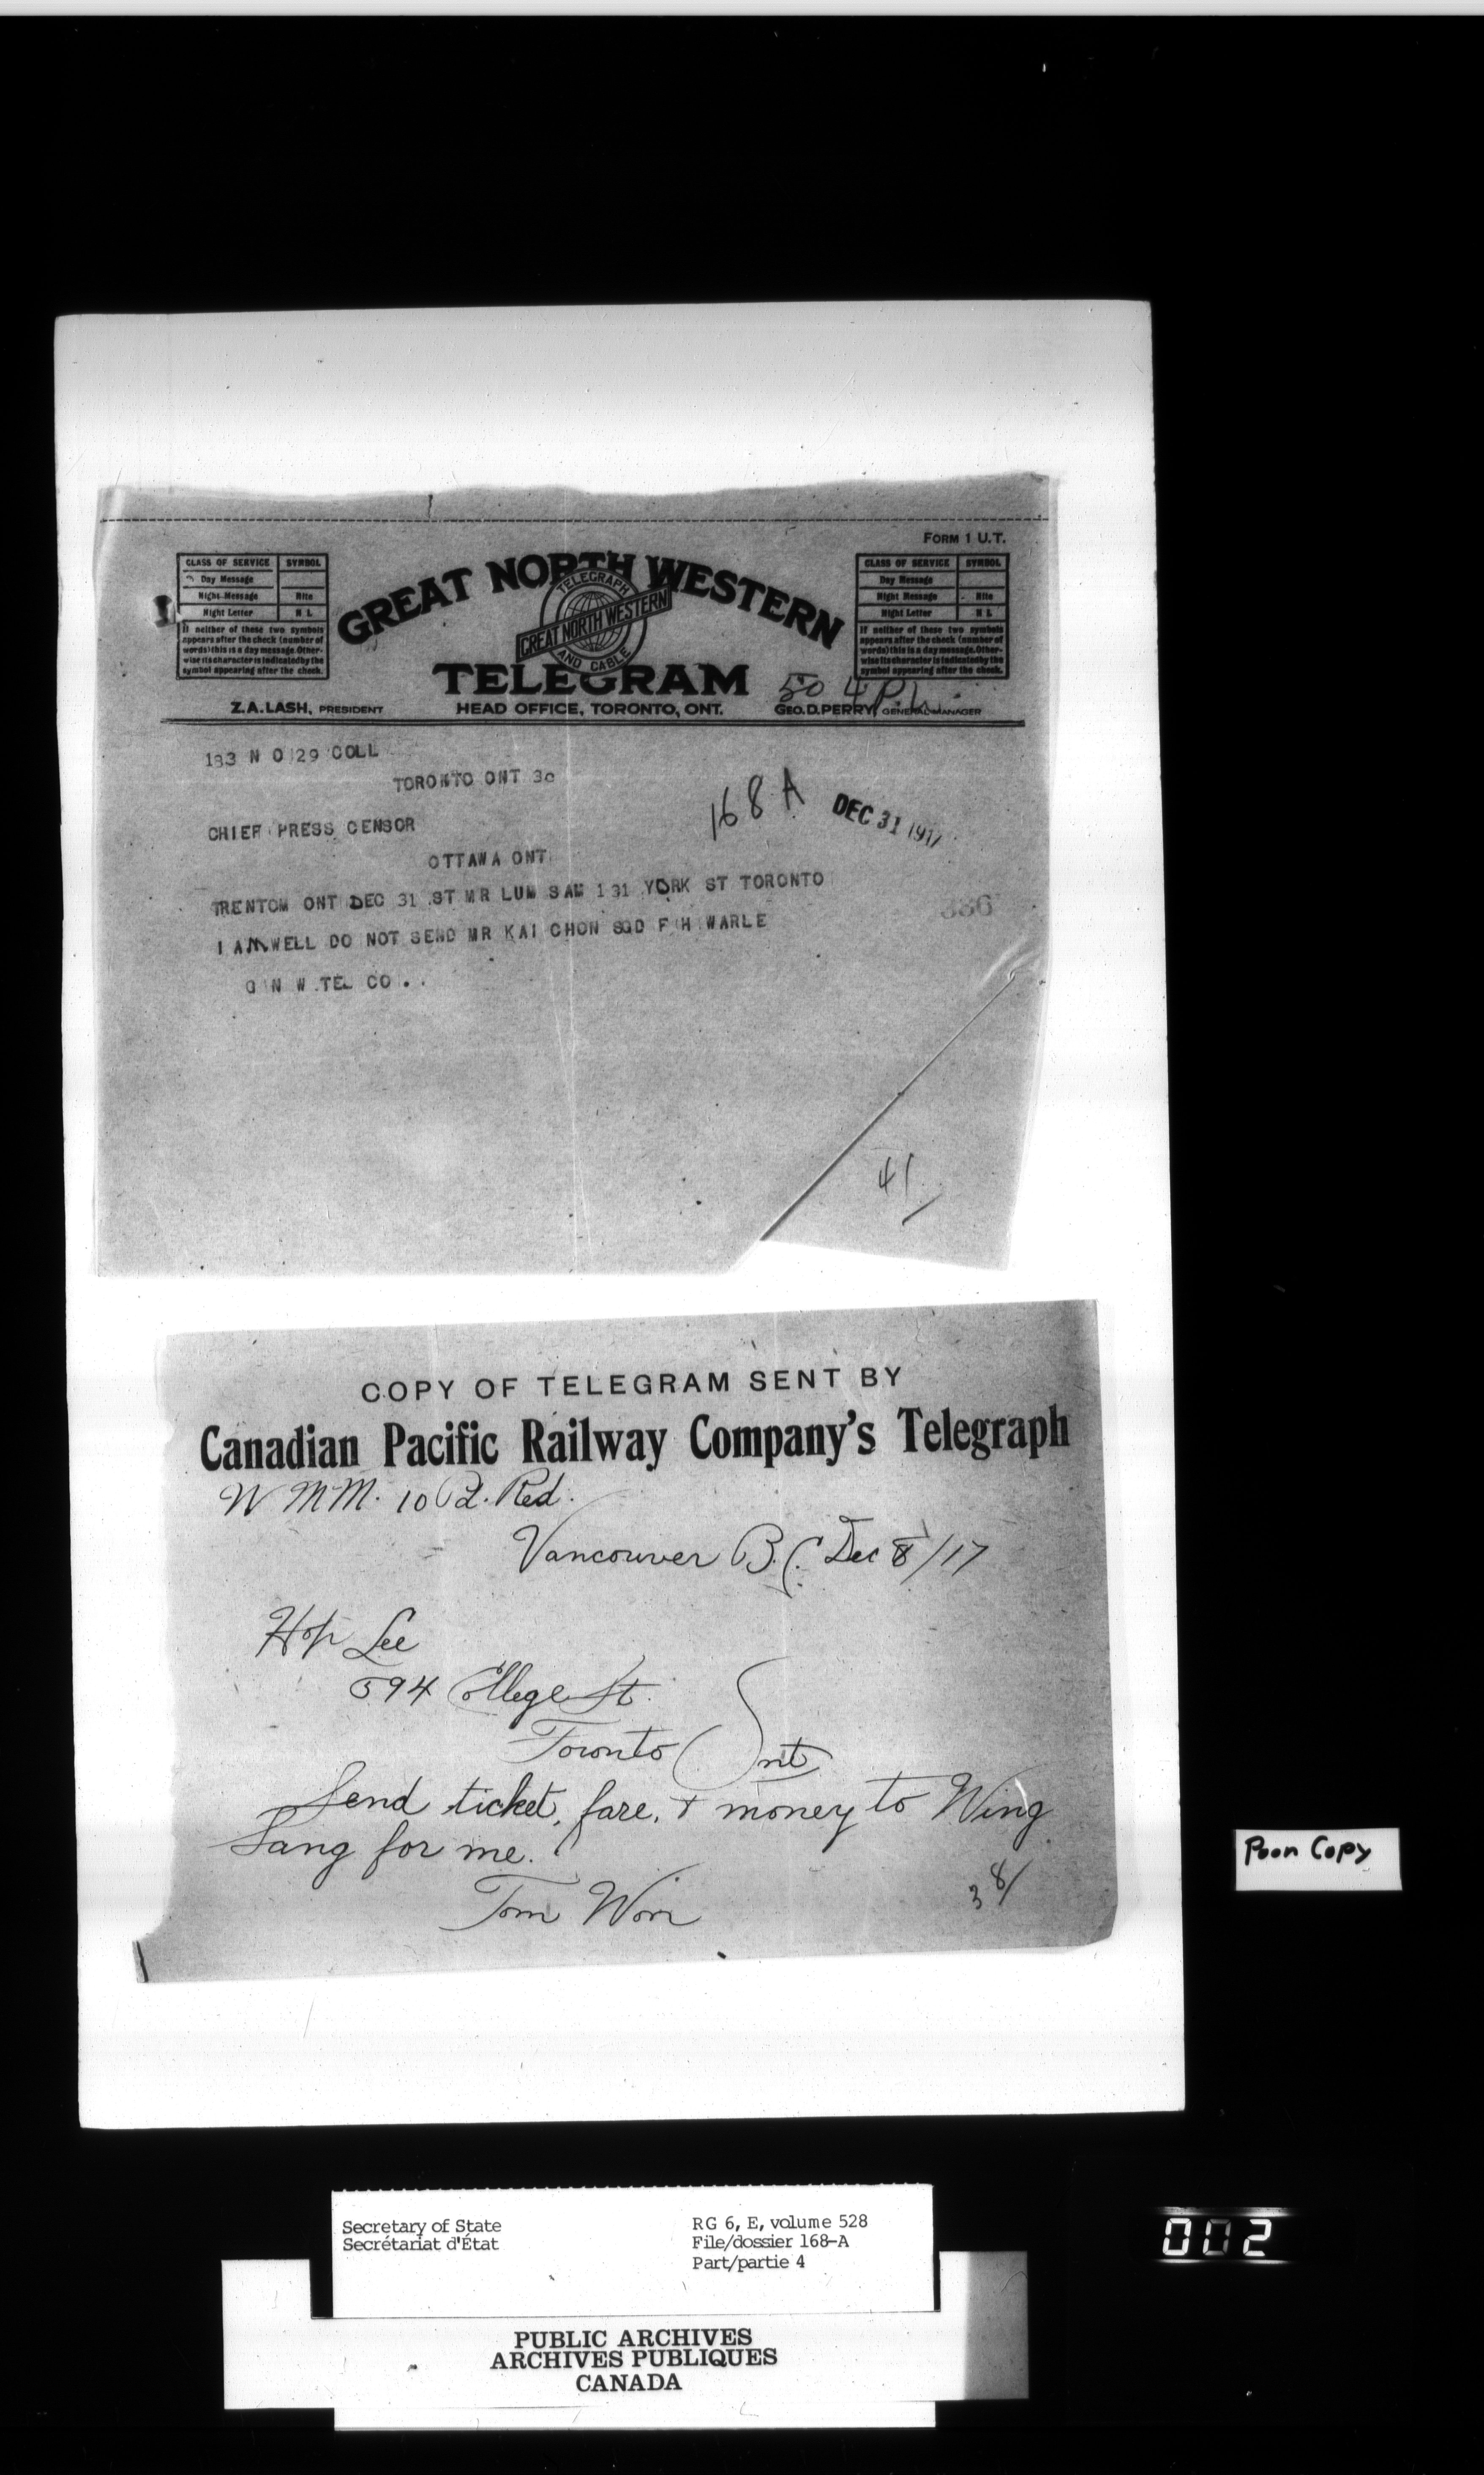 FORM 1 U.T.
CLASS OF SERVICE SYMBOL
Day Message
Night Message Nite
Night Letter N L
If neither of these two symbols
appears after the check (number of
words) this is a day message. Other-
wise its character is indicated by the
symbol appearing after the check.
GREAT NORTH WESTERN
TELEGRAPH
GREAT NORTH WESTERN
AND CABLE
TELEGRAM
CLASS OF SERVICE SYMBOL
Day Message
Night Message Nite
Night Letter N L
If neither of these two symbols
appears after the check (number of
words) this is a day message. Other-
wise its character is indicated by the
symbol appearing after the check.
50 4 P.L.
Z.A. LASH, PRESIDENT HEAD OFFICE, TORONTO, ONT. GEO. D. PERRY, GENERAL MANAGER
133 N O 29 COLL
TORONTO ONT 30
168 A
DEC 31 1917
CHIEF PRESS CENSOR
OTTAWA ONT
TRENTOM ONT DEC 31 ST MR LUM SAM 131 YORK ST TORONTO
336
I AM WELL DO NOT SEND MR KAI CHON SGD F H WARLE
G N W TEL CO . .
41
COPY OF TELEGRAM SENT BY
Canadian Pacific Railway Company's Telegraph
W MM. 10 Pd. Red.
Vancouver B.C. Dec 8/17
Hop Lee
594 College St.
Toronto Ont
Send ticket, fare, + money to Wing
Sang for me.
Tom Won
38/
Poon Copy
Secretary of State RG 6, E, volume 528
Secrétariat d'État File/dossier 168-A
Part/partie 4
002
PUBLIC ARCHIVES
ARCHIVES PUBLIQUES
CANADA